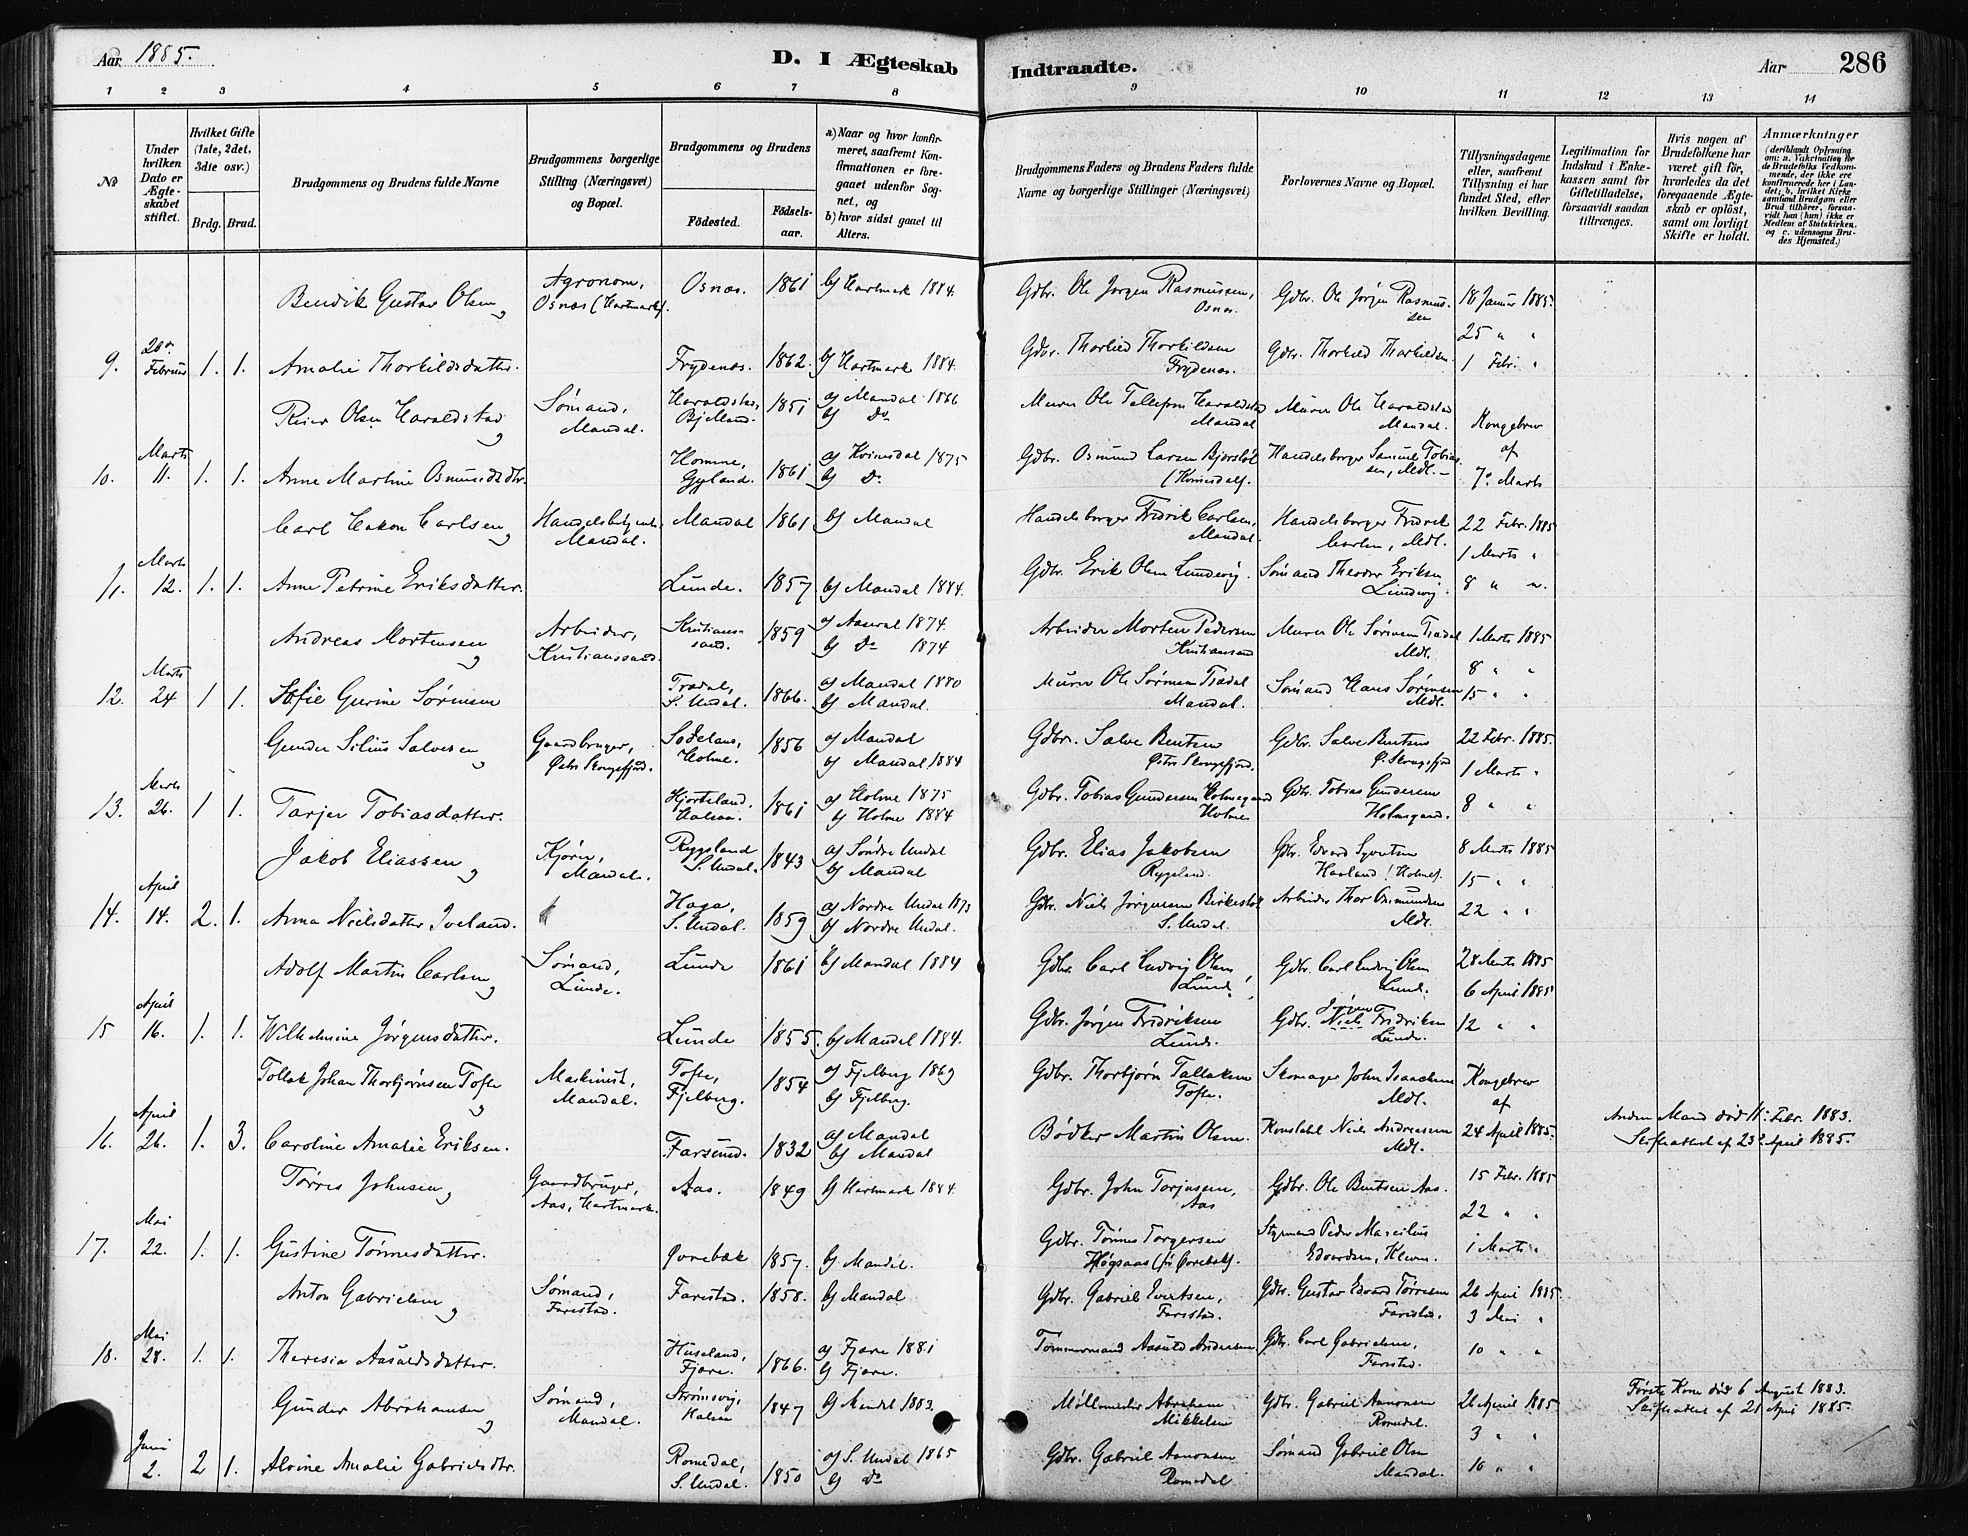 Aar 1885.
D. I Ægteskab
Indtraadte.
Aar
286
1 2 3 4 5 6 7 8 9 10 11 12 13 14
No
Under
hvilken
Dato er
Ægte-
skabet
stiftet.
Hvilket Gifte
(1ste, 2det,
3die osv.)
Brdg. Brud.
Brudgommens og Brudens fulde Navne
Brudgommens borgerlige
Stilling (Næringsvei)
og Bopæl.
Brudgommens og Brudens
Födested.
Födsels-
aar.
a) Naar og hvor konfir-
meret, saafremt Kon-
firmationen er fore-
gaaet udenfor Sog-
net, og
b) hvor sidst gaaet til
Alters.
Brudgommens Faders og Brudens Faders fulde
Navne og borgerlige Stillinger (Næringsvei)
Forlovernes Navne og Bopæl.
Tillysningsdagene
eller, saafremt
Tillysning ei har
fundet Sted, efter
hvilken Bevilling.
Legitimation for
Indskud i Enke-
kassen samt for
Giftetilladelse,
forsaavidt saadan
tiltrænges.
Hvis nogen af
Brudefolkene har
været gift för,
hvorledes da det
foregaaende Ægte-
skab er oplöst,
samt om lovligt
Skifte er holdt.
Anmærkninger
(deriblandt Oplysning
om: a. Vakcination for
de Brudefolks Vedkom-
mende, der ikke ere
konfirmerede her i Lan-
det; b. hvilket Kirke
samfund Brudgom eller
Brud tilhörer, forsaa-
vidt han (hun) ikke er
Medlem af Statskirken,
og c. udensogns Bru-
des Hjemsted.)
Bendik Gustav Olsen og
Agronom,
Osnæs (Hartmark).
Osnæs. 1861 b) Hartmark 1884.
Gdbr. Ole Jørgen Rasmussen,
Osnæs.
Gdbr. Ole Jørgen Rasmus-
sen
18 Januar 1885.
25 " "
9. 20de Februar 1. 1. Amalie Thorkildsdatter. Frydenæs. 1862. b) Hartmark 1884.
Gdbr. Thorkild Thorkildsen
Frydenæs.
Gdbr. Thorkild Thorkildsen 1 Febr. "
Reier Olsen Haraldstad og
Sømand,
Mandal.
Haraldstad,
Bjelland. 1851
a) Mandal 1866
b) Do
Murer Ole Tellefsen Haraldstad
Mandal
Murer Ole Haraldstad
Mandal.
Kongebrev
af
7de Marts
10. Marts 11. 1. 1. Anne Martine Osmundsdtr.
Homme,
Gyland. 1861
a) Kvinesdal 1875
b) Do
Gdbr. Osmund Larsen
(Kvinesdal).
Handelsborger Samuel Tobias-
sen, Mdl.
Carl Hakon Carlsen og
Handelsbetjent,
Mandal.
Mandal 1861 b) Mandal
Handelsborger Fredrik Carlsen,
Mandal.
Handelsborger Fredrik
Carlsen, Mdl.
22 Febr. 1885
1 Marts "
11. Marts 12. 1. 1. Anne Petrine Eriksdatter. Lunde. 1857 b) Mandal 1884.
Gdbr. Erik Olsen Lundevig. Sømand Theodor Eriksen
Lundevig.
8 " "
Andreas Mortensen og
Arbeider,
Kristianssand.
Kristians-
sand. 1859
a) Aaseral 1874
b) Do 1874
Arbeider Morten Pedersen
Kristianssand
Murer Ole Sørensen Tradal
Mdl.
1 Marts 1885
8 " "
12. Marts 24 1 1. Sofie Gurine Sørensen
Tradal,
S. Undal. 1866.
a) Mandal 1880
b) Mandal.
Murer Ole Sørensen Tradal
Mandal.
Sømand Hans Sørensen
Mdl.
15 " "
Gunder Silius Salvesen og
Gaardbruger,
Østre Skogsfjord.
Sodeland,
Holme. 1856
a) Mandal
b) Mandal 1884
Gdbr. Salve Bentsen
Østre Skogsfjord.
Gdbr. Salve Bentsen
Ø. Skogsfjord
22 Febr. 1885.
1 Marts "
13. Marts 26. 1 1. Tarjer Tobiasdatter.
Hjorteland.
Halsaa. 1861
a) Holme 1875
b) Holme 1884
Gdbr. Tobias Gundersen Holmegaard
Holme
Gdbr. Tobias Gundersen
Holmegaard.
8 " "
Jakob Eliassen og
Kjøren,
Mandal.
Rygsland
S. Undal. 1843
a) Søndre Undal
b) Mandal
Gdbr. Elias Jakobsen
Rygsland.
Gdbr. Edvard Syvertsen
Haaland (Holme).
8 Marts 1885
15 " "
14. April 14. 2. 1. Anna Nielsdatter Iveland.
Haga,
S. Undal. 1859
a) Nordre Undal 1873
b) Nordre Undal.
Gdbr. Niels Jørgensen Birkestøl
S. Undal.
Arbeider Thor Osmundsen
Mdl.
22 " "
Adolf Martin Carlsen og
Sømand,
Lunde.
Lunde 1861 b) Mandal 1884
Gdbr. Carl Ludvig Olsen,
Lunde.
Gdbr. Carl Ludvig Olsen
Lunde.
28 Marts 1885
6 April 1885
15 April 16. 1. 1. Wilhelmine Jørgensdatter. Lunde 1855. b) Mandal 1884.
Gdbr. Jørgen Fredriksen
Lunde.
Jørgen
Gdbr. Niels Fredriksen
Lunde.
12 " "
Tollak Johan Thorbjørnsen Tofte og
Maskinist,
Mandal.
Tofte,
Fjelberg. 1854
a) Fjelberg 1869
b) Fjelberg.
Gdbr. Thorbjørn Tallaksen
Tofte.
Skomager John Isaachsen
Mdl.
Kongebrev
af
16. April 26. 1. 3. Caroline Amalie Eriksen. Farsund. 1832
a) Mandal
b) Mandal
Bødker Martin Olsen. Konstabel Niels Andreassen
Mdl.
24 April 1885.
Anden Mand død 11. Febr. 1883.
Skifteattest af 23de April 1885.
Tørres Johnsen og
Gaardbruger,
Aas, Hartmark.
Aas. 1849 b) Hartmark 1884.
Gdbr. John Torjussen,
Aas
Gdbr. Ole Bentsen Aas.
15 Febr. 1885
22 " "
17. Mai 22. 1. 1. Gustine Tønnesdatter. Ovrebæk 1857. b) Mandal.
Gdbr. Tønnes Torgersen
Høgsaas (fra Øvrebæk).
Styrmand Peder Marselius
Edvardsen, Kleven.
1 Marts "
Anton Gabrielsen og
Sømand,
Farestad.
Farestad. 1858. b) Mandal
Gdbr. Gabriel Evertsen,
Farestad.
Gdbr. Gustav Edvard Tørresen
Farestad.
26 April 1885
3 Mai "
18. Mai 28. 1. 1. Theresia Aasuldsdatter.
Huseland,
Fjære. 1866.
a) Fjære 1881
b) Fjære.
Tømmermand Aasuld Andersen Gdbr. Carl Gabrielsen,
Farestad.
10 " "
Gunder Abrahamsen og
Sømand,
Mandal.
Strømsvig,
Halsaa 1847 b) Mandal 1883.
Møllemester Abraham
Mikkelsen
Gdbr. Gabriel Aanonsen
Romedal.
26 April 1885
3 " "
Første Kone død 6 August 1883.
Skifteattest af 21 April 1885.
Juni 2. 2 1. Alvine Amalie Gabrielsdtr.
Romedal,
S. Undal. 1850
a) S. Undal 1865
b) Do
Gdbr. Gabriel Aanonsen
Romedal
Sømand Gabriel Olsen
Mandal.
10 " "